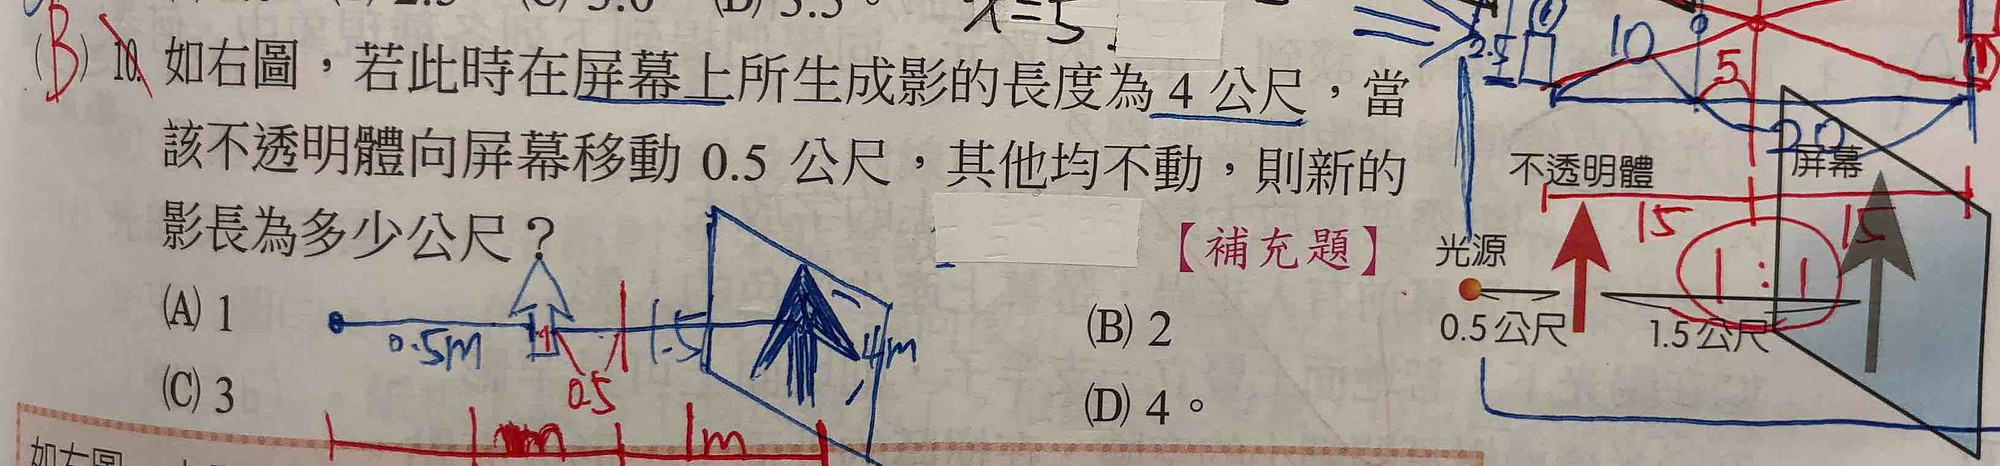 x=5
(B) 10. 如右圖，若此時在屏幕上所生成影的長度為 4 公尺，當
該不透明體向屏幕移動 0.5 公尺，其他均不動，則新的
影長為多少公尺？
【補充題】
(A) 1
(B) 2
(C) 3
(D) 4。
0.5m
0.5
1.5
4m
1m
10
5
20
不透明體
屏幕
15
15
1:1
光源
0.5公尺
1.5公尺
如右圖